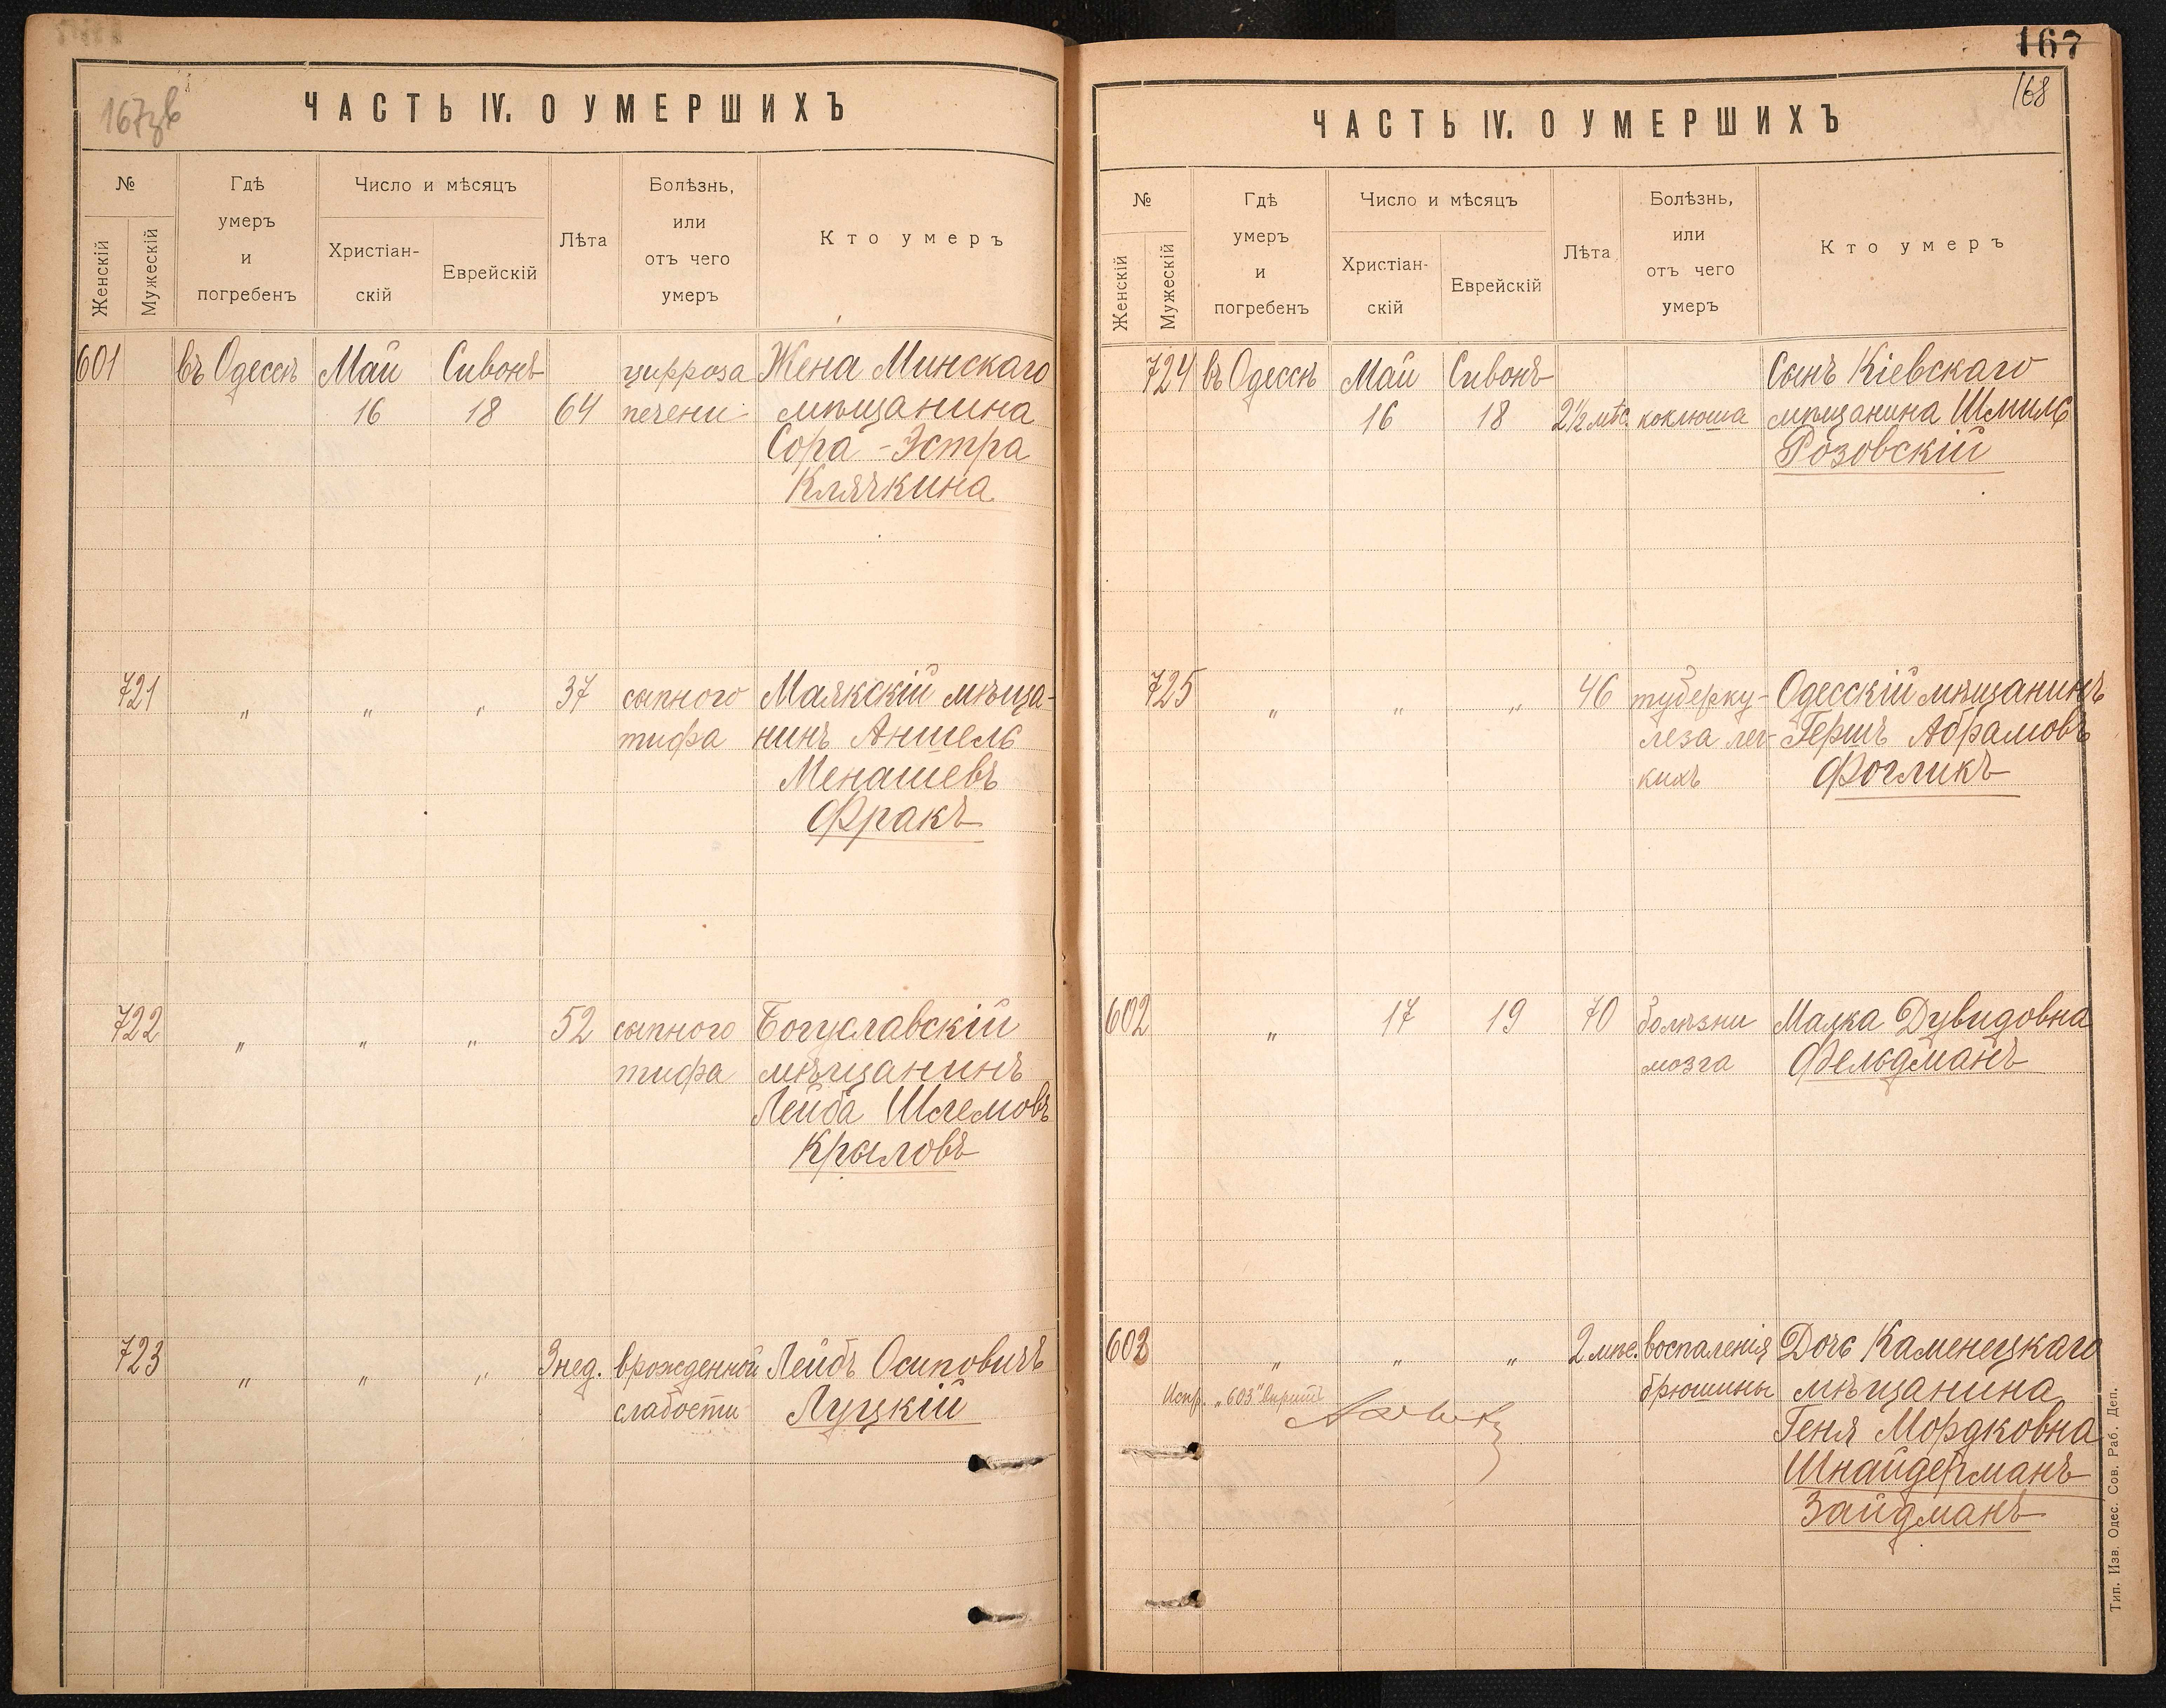 167зв
ЧАСТЬ IV. О УМЕРШИХЪ
№
Женскій
Мужескій
Гдѣ
умеръ
и
погребенъ
Число и мѣсяцъ
Христіан-
скій
Еврейскій
Лѣта
Болѣзнь,
или
отъ чего
умеръ
Кто умеръ
601 въ Одессѣ Май Сивонъ цирроза Жена Минскаго
16 18 64 печени мѣщанина
Сора-Эстра
Клячкина
721 " " " 37 сыпного Маякскій мѣща-
тифа нинъ Аншель
Менашевъ
Фракъ
722 " " " 52 сыпного Богуславскій
тифа мѣщанинъ
Лейба Шлемовъ
Крыловъ
723 " " " 3 нед. врожденной Лейбъ Осиповичъ
слабости Луцкій
167
168
ЧАСТЬ IV. О УМЕРШИХЪ
№
Женскій
Мужескій
Гдѣ
умеръ
и
погребенъ
Число и мѣсяцъ
Христіан-
скій
Еврейскій
Лѣта
Болѣзнь,
или
отъ чего
умеръ
Кто умеръ
724 въ Одессѣ Май Сивонъ Сынъ Кіевскаго
16 18 2½ мѣс. коклюша мѣщанина Шмиль
Розовскій
725 " " " 46 туберку- Одесскій мѣщанинъ
леза лег- Гершъ Абрамовъ
кихъ Фогликъ
602 " 17 19 70 болѣзни Малка Дувидовна
мозга Фельдманъ
603 " " " 2 мѣс. воспаленія Дочь Каменецкаго
Испр. "603" вѣрить брюшины мѣщанина
Геня Мордковна
Шнайдерманъ
Зайдманъ
Тип. Изв. Одес. Сов. Раб. Деп.